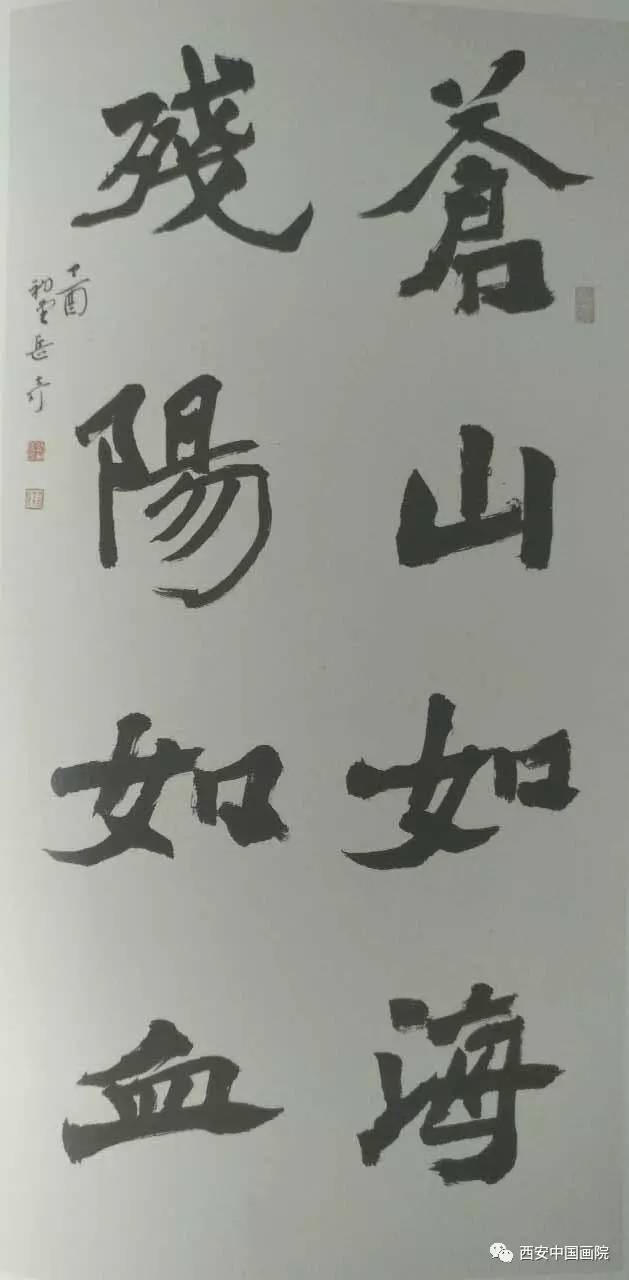 蒼山如海
殘陽如血
丁酉
初夏岳奇
西安中国画院